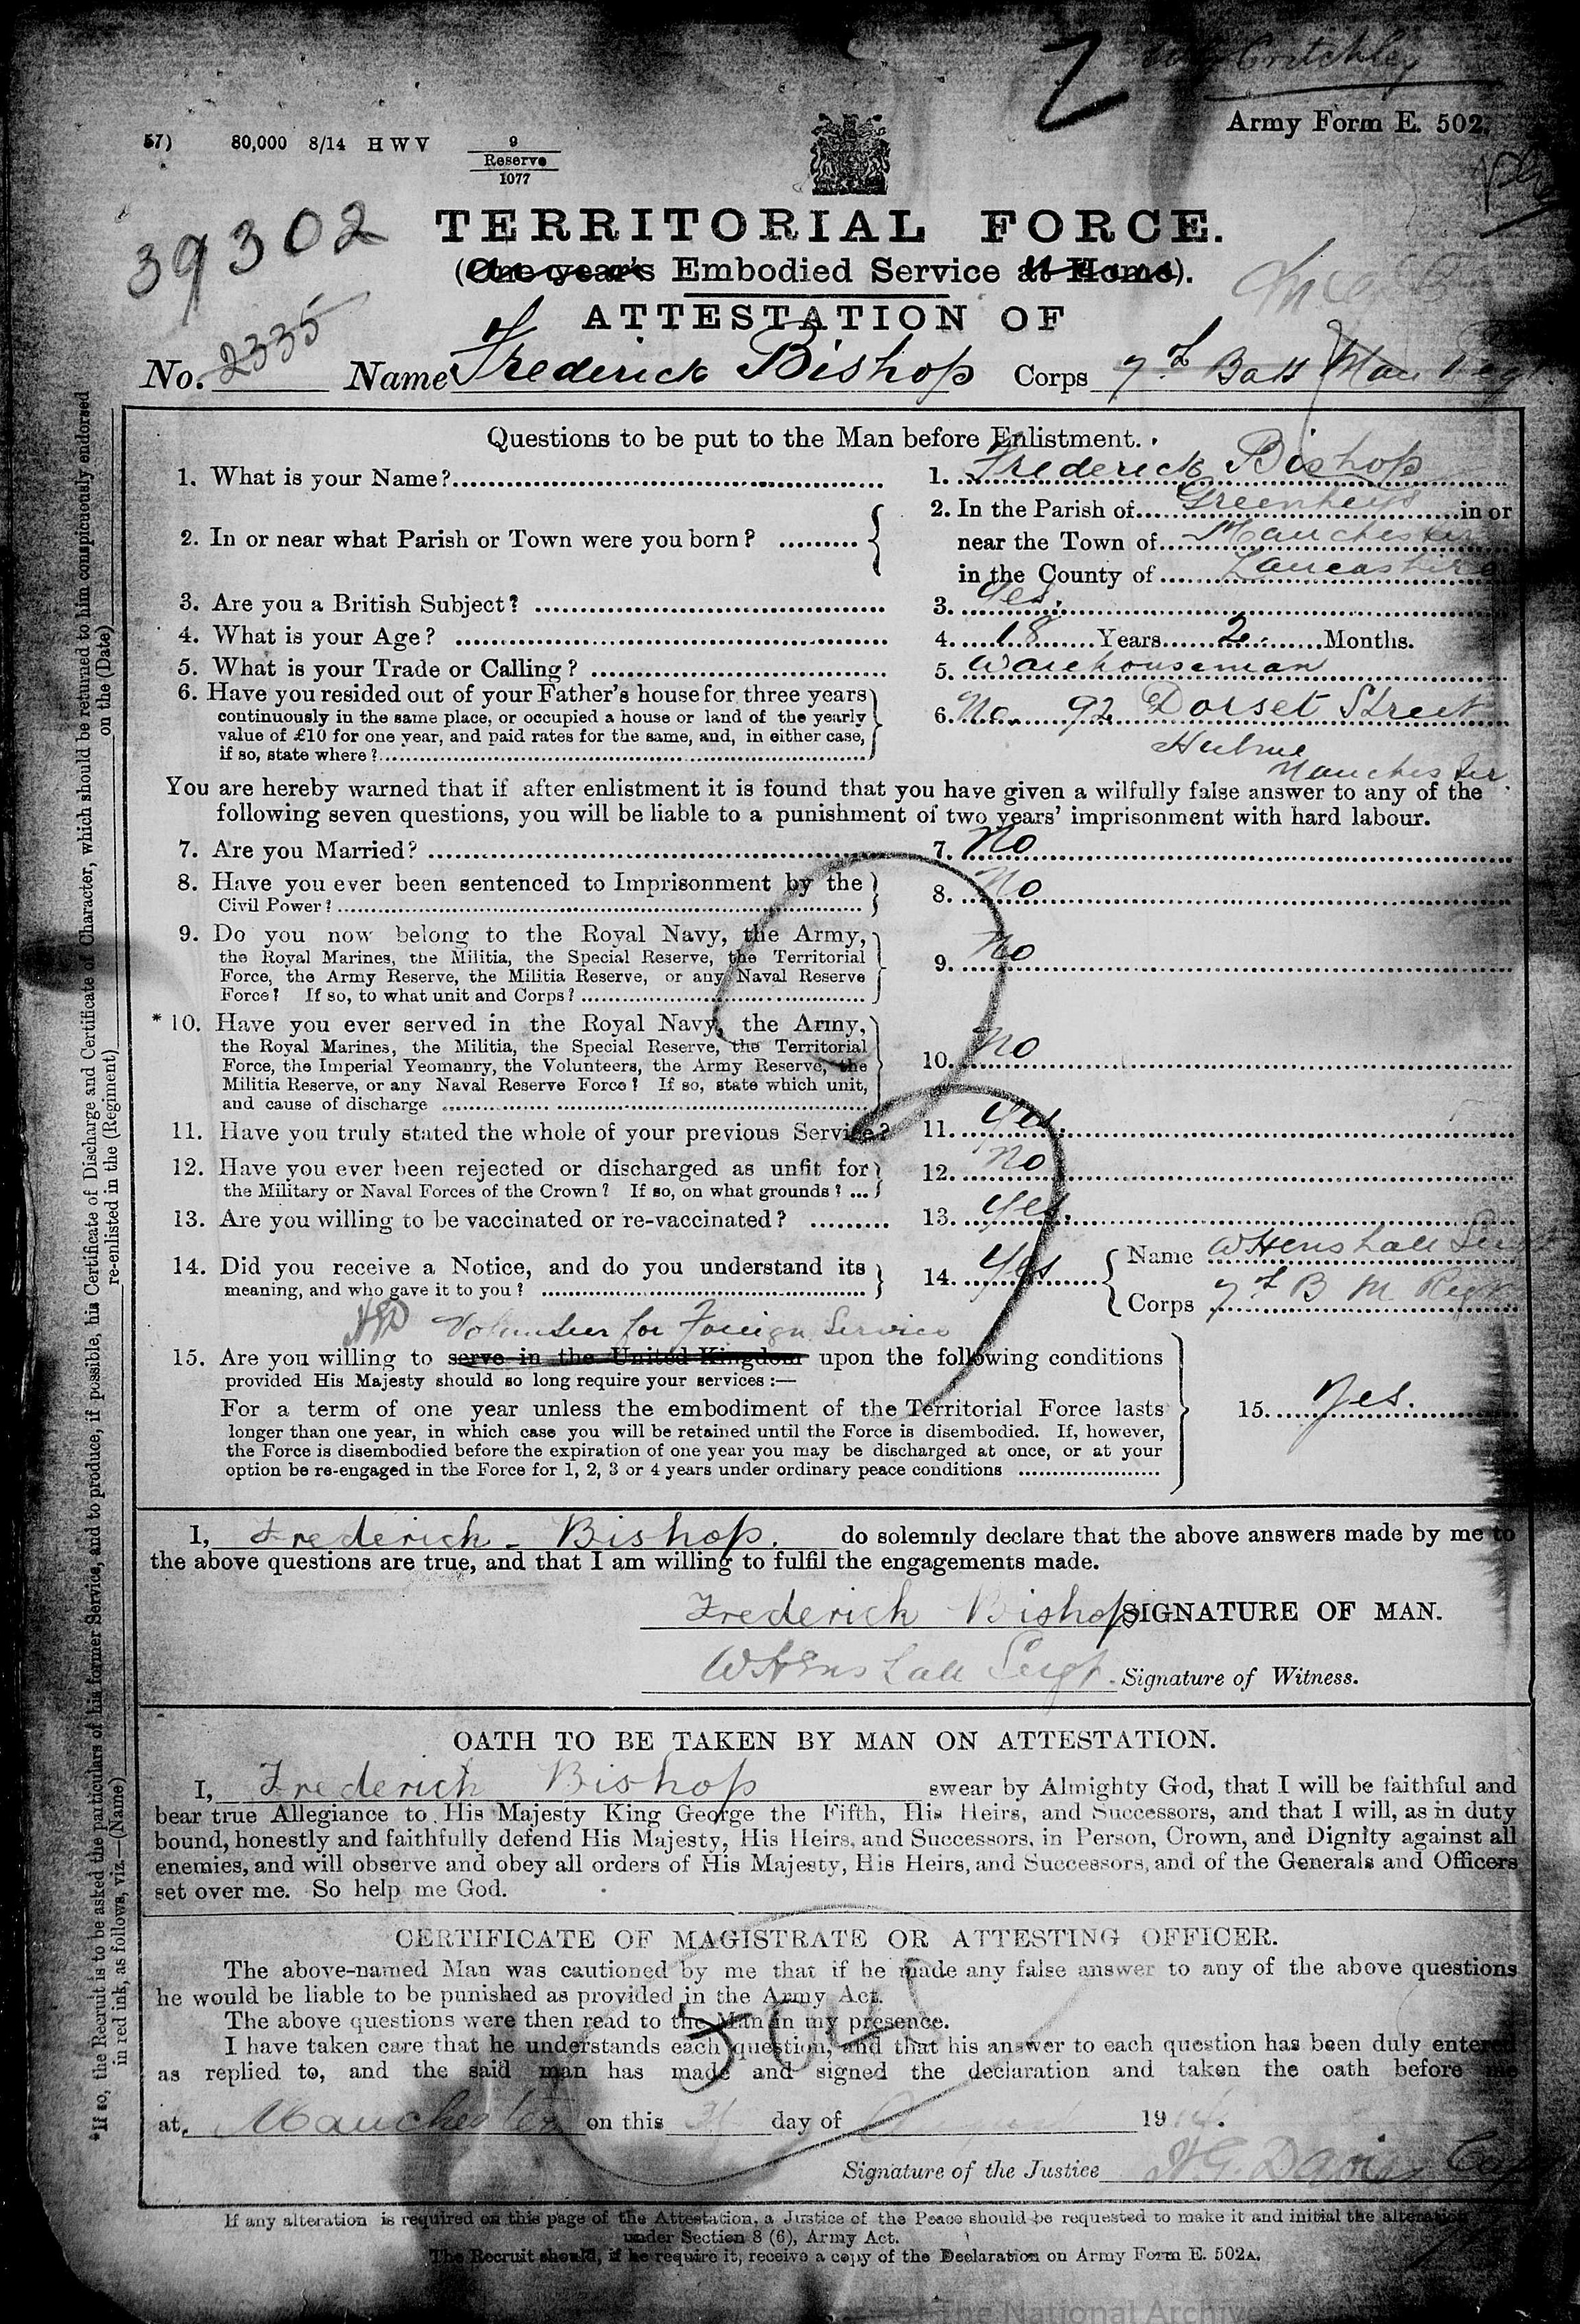 Critchley
Army Form E. 502.
57) 80,000 8/14 H W V 9
Reserve
1077
39302
TERRITORIAL FORCE.
(One year's Embodied Service at Home).
ATTESTATION OF
No. 2335 Name Frederick Bishop Corps 7th Batt Man Regt
Questions to be put to the Man before Enlistment.
1. What is your Name? 1. Frederick Bishop
2. In or near what Parish or Town were you born? 2. In the Parish of Greenheys in or
near the Town of Manchester
in the County of Lancashire
3. Are you a British Subject? 3. Yes.
4. What is your Age? 4. 18 Years 2 Months.
5. What is your Trade or Calling? 5. Warehouseman
6. Have you resided out of your Father's house for three years 6. No 92 Dorset Street
continuously in the same place, or occupied a house or land of the yearly
value of £10 for one year, and paid rates for the same, and, in either case, Hulme
if so, state where? Manchester
You are hereby warned that if after enlistment it is found that you have given a wilfully false answer to any of the
following seven questions, you will be liable to a punishment of two years' imprisonment with hard labour.
7. Are you Married? 7. No
8. Have you ever been sentenced to Imprisonment by the 8. No
Civil Power?
9. Do you now belong to the Royal Navy, the Army,
the Royal Marines, the Militia, the Special Reserve, the Territorial 9. No
Force, the Army Reserve, the Militia Reserve, or any Naval Reserve
Force? If so, to what unit and Corps?
* 10. Have you ever served in the Royal Navy, the Army,
the Royal Marines, the Militia, the Special Reserve, the Territorial
Force, the Imperial Yeomanry, the Volunteers, the Army Reserve, the 10. No
Militia Reserve, or any Naval Reserve Force? If so, state which unit,
and cause of discharge
11. Have you truly stated the whole of your previous Service? 11. Yes.
12. Have you ever been rejected or discharged as unfit for 12. No
the Military or Naval Forces of the Crown? If so, on what grounds? ...
13. Are you willing to be vaccinated or re-vaccinated? 13. Yes.
14. Did you receive a Notice, and do you understand its 14. Yes Name W Henshall Sergt
meaning, and who gave it to you? Corps 7th B M Regt
Volunteer for Foreign Service
15. Are you willing to serve in the United Kingdom upon the following conditions
provided His Majesty should so long require your services :—
For a term of one year unless the embodiment of the Territorial Force lasts 15. Yes.
longer than one year, in which case you will be retained until the Force is disembodied. If, however,
the Force is disembodied before the expiration of one year you may be discharged at once, or at your
option be re-engaged in the Force for 1, 2, 3 or 4 years under ordinary peace conditions
I, Frederick Bishop. do solemnly declare that the above answers made by me to
the above questions are true, and that I am willing to fulfil the engagements made.
Frederick Bishop SIGNATURE OF MAN.
W Henshall Sergt. Signature of Witness.
OATH TO BE TAKEN BY MAN ON ATTESTATION.
I, Frederick Bishop swear by Almighty God, that I will be faithful and
bear true Allegiance to His Majesty King George the Fifth, His Heirs, and Successors, and that I will, as in duty
bound, honestly and faithfully defend His Majesty, His Heirs, and Successors, in Person, Crown, and Dignity against all
enemies, and will observe and obey all orders of His Majesty, His Heirs, and Successors, and of the Generals and Officers
set over me. So help me God.
CERTIFICATE OF MAGISTRATE OR ATTESTING OFFICER.
The above-named Man was cautioned by me that if he made any false answer to any of the above questions
he would be liable to be punished as provided in the Army Act.
The above questions were then read to the Man in my presence.
I have taken care that he understands each question, and that his answer to each question has been duly entered
as replied to, and the said man has made and signed the declaration and taken the oath before me
at, Manchester on this 31 day of August 1914.
Signature of the Justice H G. Davies Capt
If any alteration is required on this page of the Attestation, a Justice of the Peace should be requested to make it and initial the alteration
under Section 8 (6), Army Act.
The Recruit should, if he require it, receive a copy of the Declaration on Army Form E. 502A.
*If so, the Recruit is to be asked the particulars of his former Service, and to produce, if possible, his Certificate of Discharge and Certificate of Character, which should be returned to him conspicuously endorsed
in red ink, as follows, viz.—(Name) re-enlisted in the (Regiment) on the (Date)
The National Archives